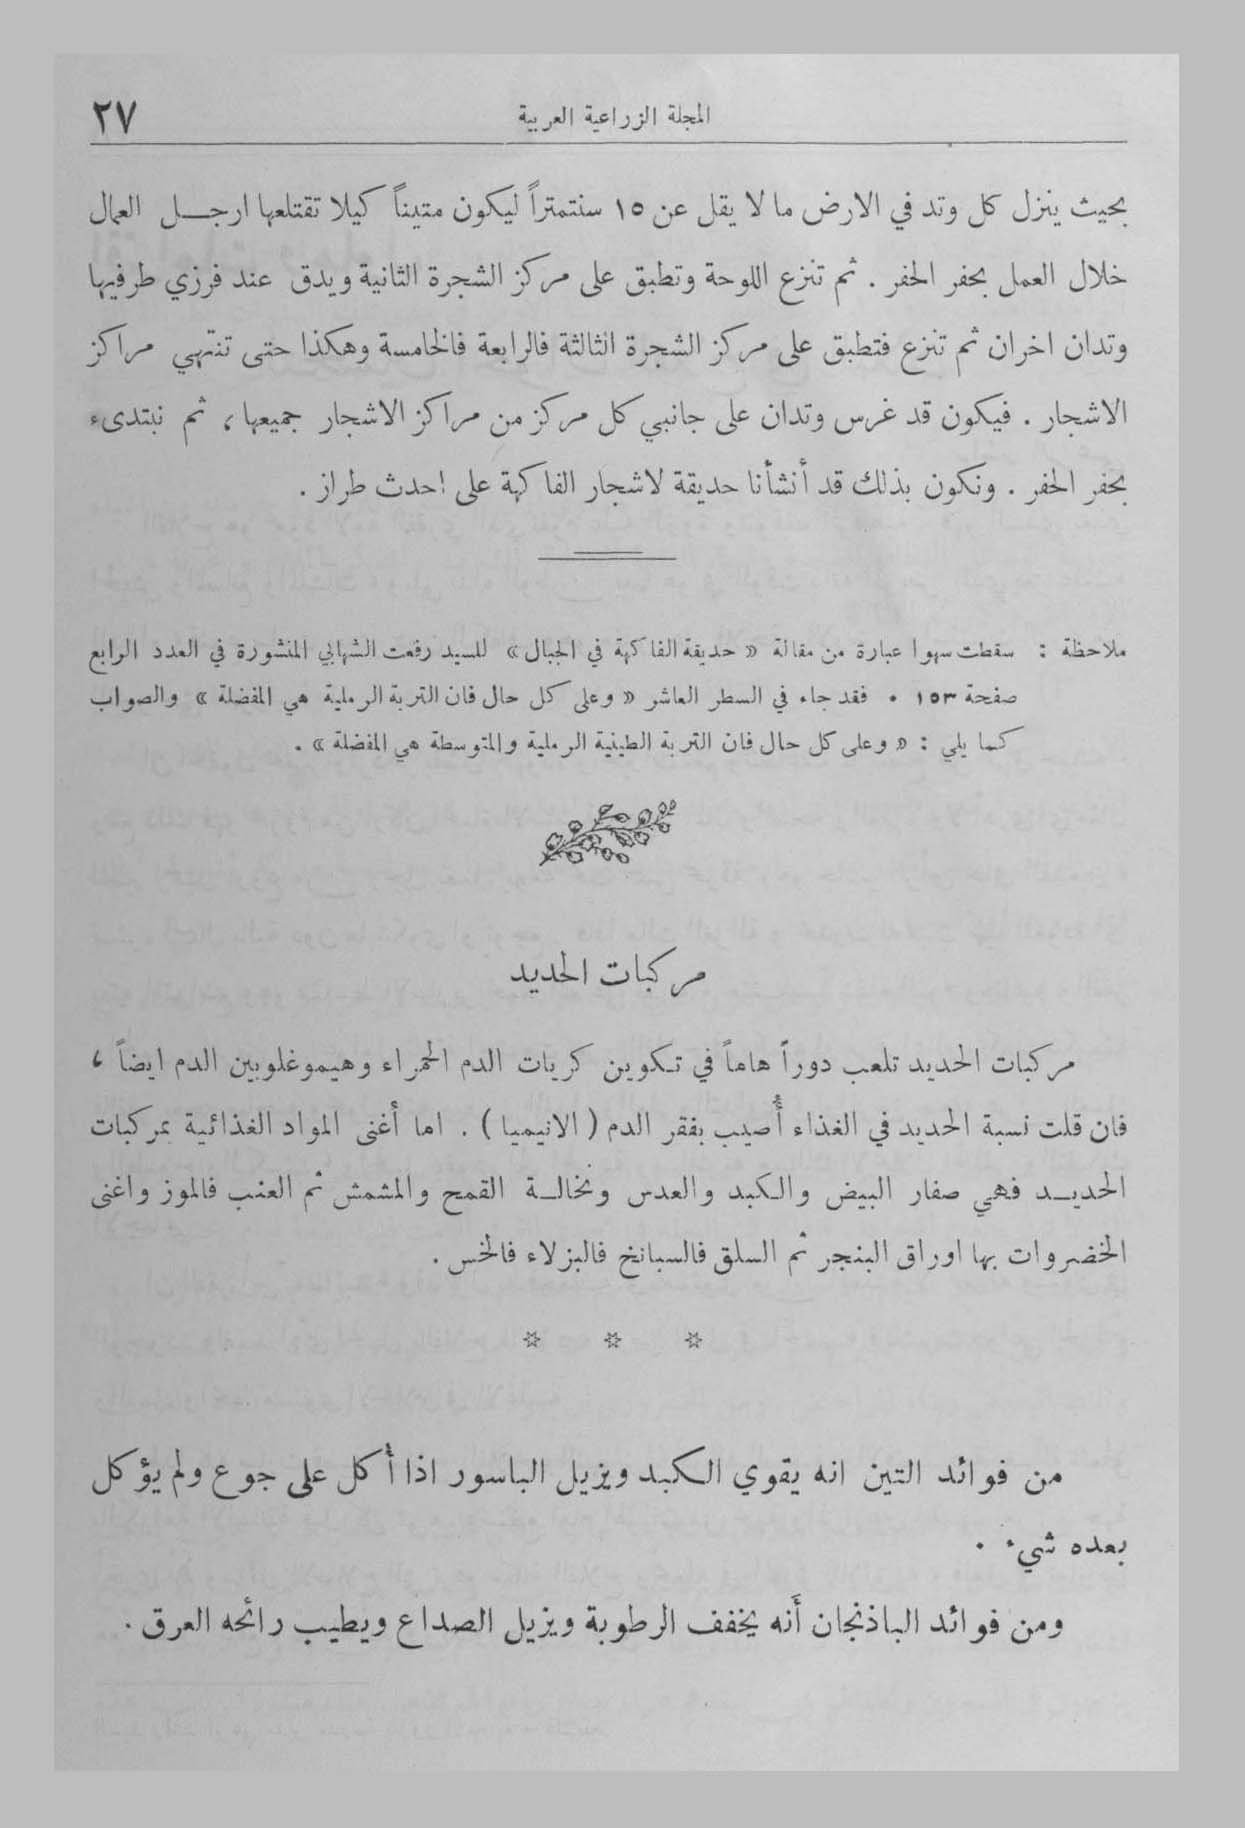 المجلة الزراعية العربية
٢٧
بحيث ينزل كل وتد في الارض ما لا يقل عن ١٥ سنتمتراً ليكون متيناً كيلا تقتلعها ارجل العمال
خلال العمل بحفر الحفر . ثم تنزع اللوحة وتطبق على مركز الشجرة الثانية ويدق عند فرزي طرفيها
وتدان اخران ثم تنزع فتطبق على مركز الشجرة الثالثة فالرابعة فالخامسة وهكذا حتى تنتهي مراكز
الاشجار . فيكون قد غرس وتدان على جانبي كل مركز من مراكز الاشجار جميعها ، ثم نبتدىء
بحفر الحفر . ونكون بذلك قد أنشأنا حديقة لاشجار الفاكهة على احدث طراز .
ملاحظة : سقطت سهوا عبارة من مقالة « حديقة الفاكهة في الجبال » للسيد رفعت الشهابي المنشورة في العدد الرابع
صفحة ١٥٣ . فقد جاء في السطر العاشر « وعلى كل حال فان التربة الرملية هي المفضلة » والصواب
كما يلي : « وعلى كل حال فان التربة الطينية الرملية والمتوسطة هي المفضلة » .
مركبات الحديد
مركبات الحديد تلعب دوراً هاماً في تكوين كريات الدم الحمراء وهيموغلوبين الدم ايضاً ،
فان قلت نسبة الحديد في الغذاء أُصيب بفقر الدم ( الانيميا ) . اما أغنى المواد الغذائية بمركبات
الحديد فهي صفار البيض والكبد والعدس ونخالة القمح والمشمش ثم العنب فالموز واغنى
الخضروات بها اوراق البنجر ثم السلق فالسبانخ فالبزلاء فالخس .
من فوائد التين انه يقوي الكبد ويزيل الباسور اذا أُكل على جوع ولم يؤكل
بعده شيء .
ومن فوائد الباذنجان أنه يخفف الرطوبة ويزيل الصداع ويطيب رائحه العرق .